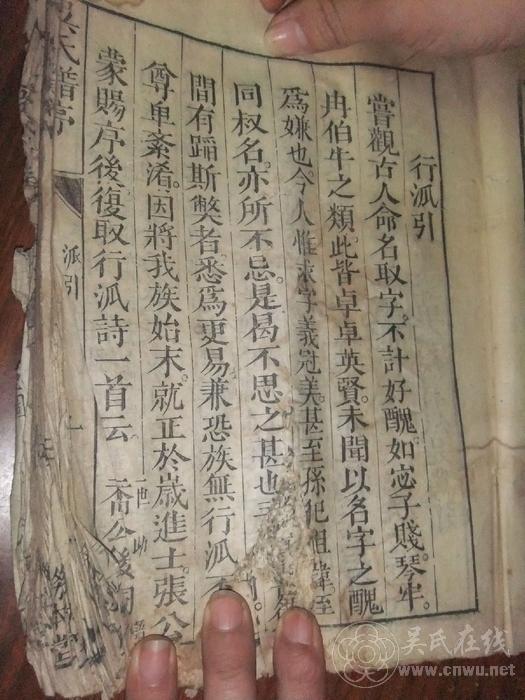 行派引
嘗觀古人命名取字不計好醜如宓子賤琴牢
冉伯牛之類此皆卓卓英賢未聞以名字之醜
爲嫌也今人惟求字義冠美甚至孫犯祖諱至
同叔名亦所不忌是曷不思之甚也
間有蹈斯獘者悉爲更易兼恐族無行派
尊卑紊淆因將我族始末就正於歲進士張公
蒙賜序後復取行派詩一首云 喬公後
一世 助
氏譜序
派引
吴氏在线
www.cnwu.net